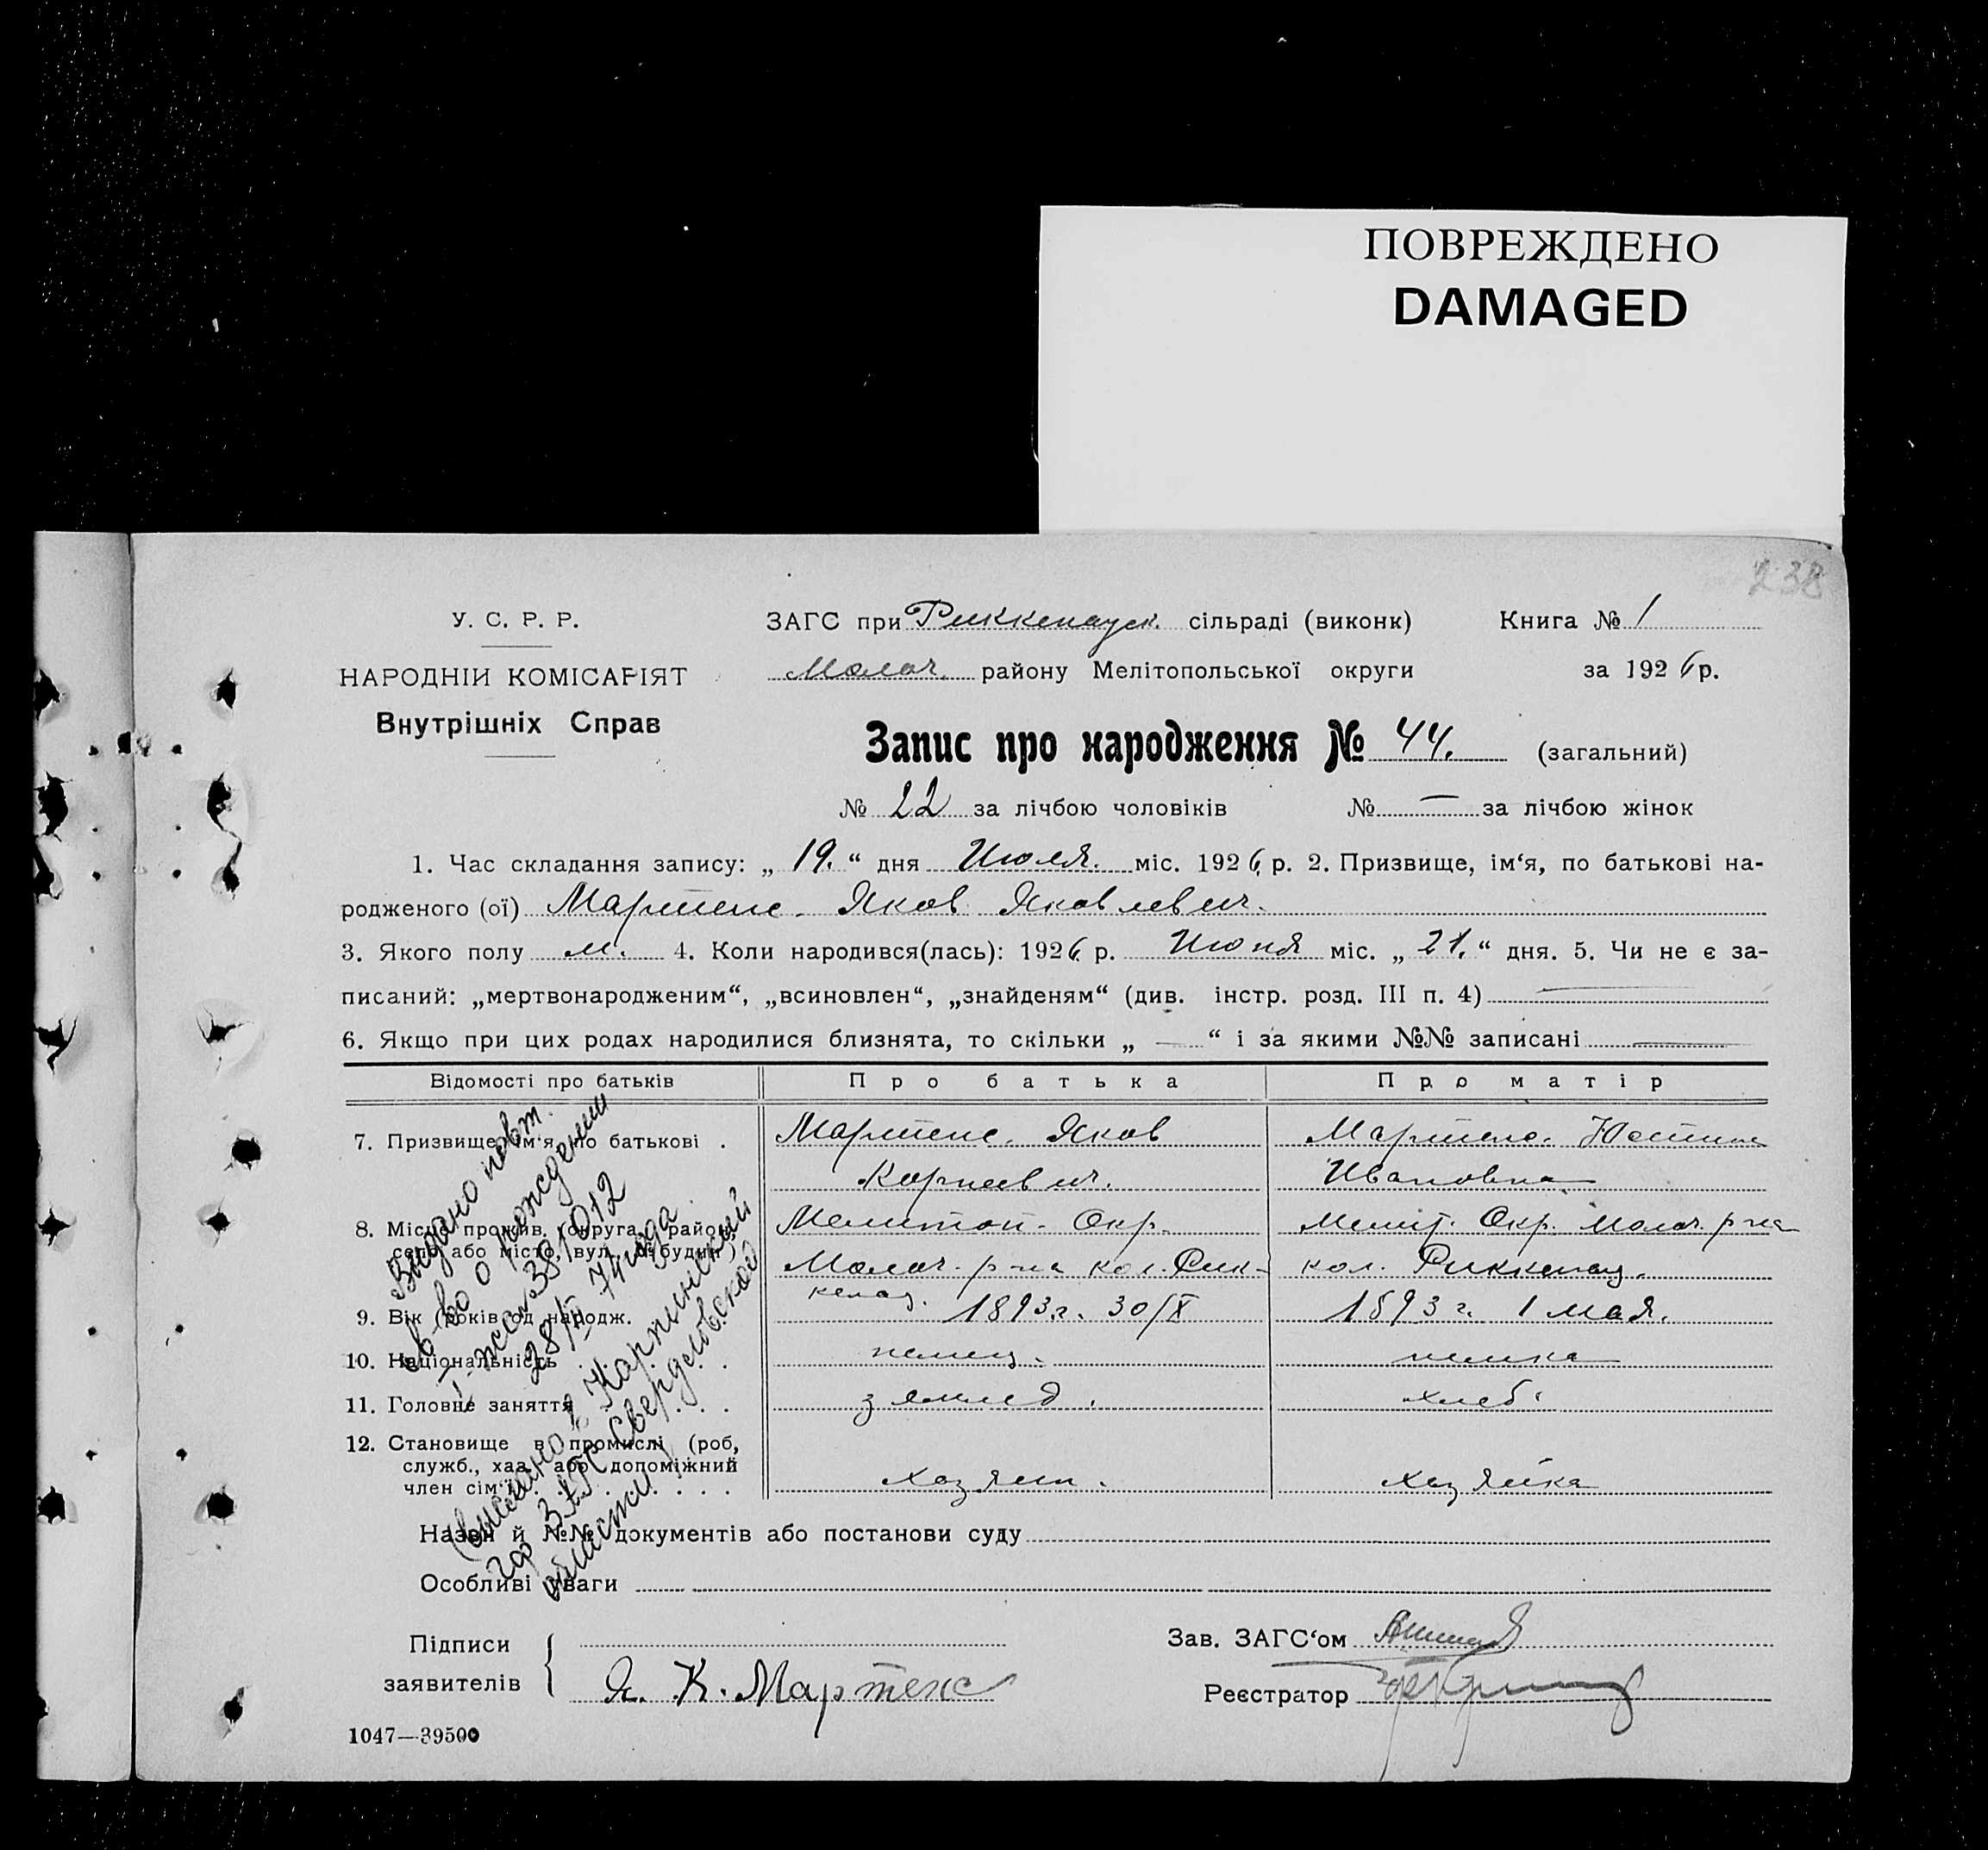 ПОВРЕЖДЕНО
DAMAGED
238
У. С. Р. Р.
НАРОДНІЙ КОМІСАРІЯТ
Внутрішніх Справ
ЗАГС при Риккенауск. сільраді (виконк)
Книга № 1
Молоч. району Мелітопольської округи
за 1926 р.
Запис про народження № 44. (загальний)
№ 22 за лічбою чоловіків № — за лічбою жінок
1. Час складання запису: „ 19. “ дня Июля. міс. 1926 р. 2. Призвище, ім‘я, по батькові на-
родженого (ої) Мартенс. Яков Яковлевич.
3. Якого полу м. 4. Коли народився(лась): 1926 р. Июня міс. „ 21. “ дня. 5. Чи не є за-
писаний: „мертвонародженим“, „всиновлен“, „знайденям“ (див. інстр. розд. III п. 4) —
6. Якщо при цих родах народилися близнята, то скільки „ — “ і за якими №№ записані —
Відомості про батьків
Про батька
Про матір
7. Призвище, ім‘я, по батькові .
Мартенс. Яков
Корнеевич.
Мартенс. Юстина
Ивановна
8. Місце прожив. (округа, район,
село або місто, вул., № будин.)
Мелитоп. Окр.
Молоч. р-на кол. Рик-
кенау.
Мелит. Окр. Молоч. р-на
кол. Риккенау.
9. Вік (років од народж.
1893 г. 30/X
1893 г. 1 мая.
10. Національність
немец.
немка
11. Головне заняття
землед.
хлеб.
12. Становище в промислі (роб,
служб., хаз. або допоміжний
член сім‘ї)
хозяин.
хозяйка
Выдано повт.
св-во о рождении
I-жс № 381012
28/II 74 года
(выслано в Карпинский
гор ЗАГС Свердловской
области)
Назви й №№ документів або постанови суду
Особливі уваги
Підписи
заявителів
Я. К. Мартенс
Зав. ЗАГС‘ом
Реєстратор
1047—39500